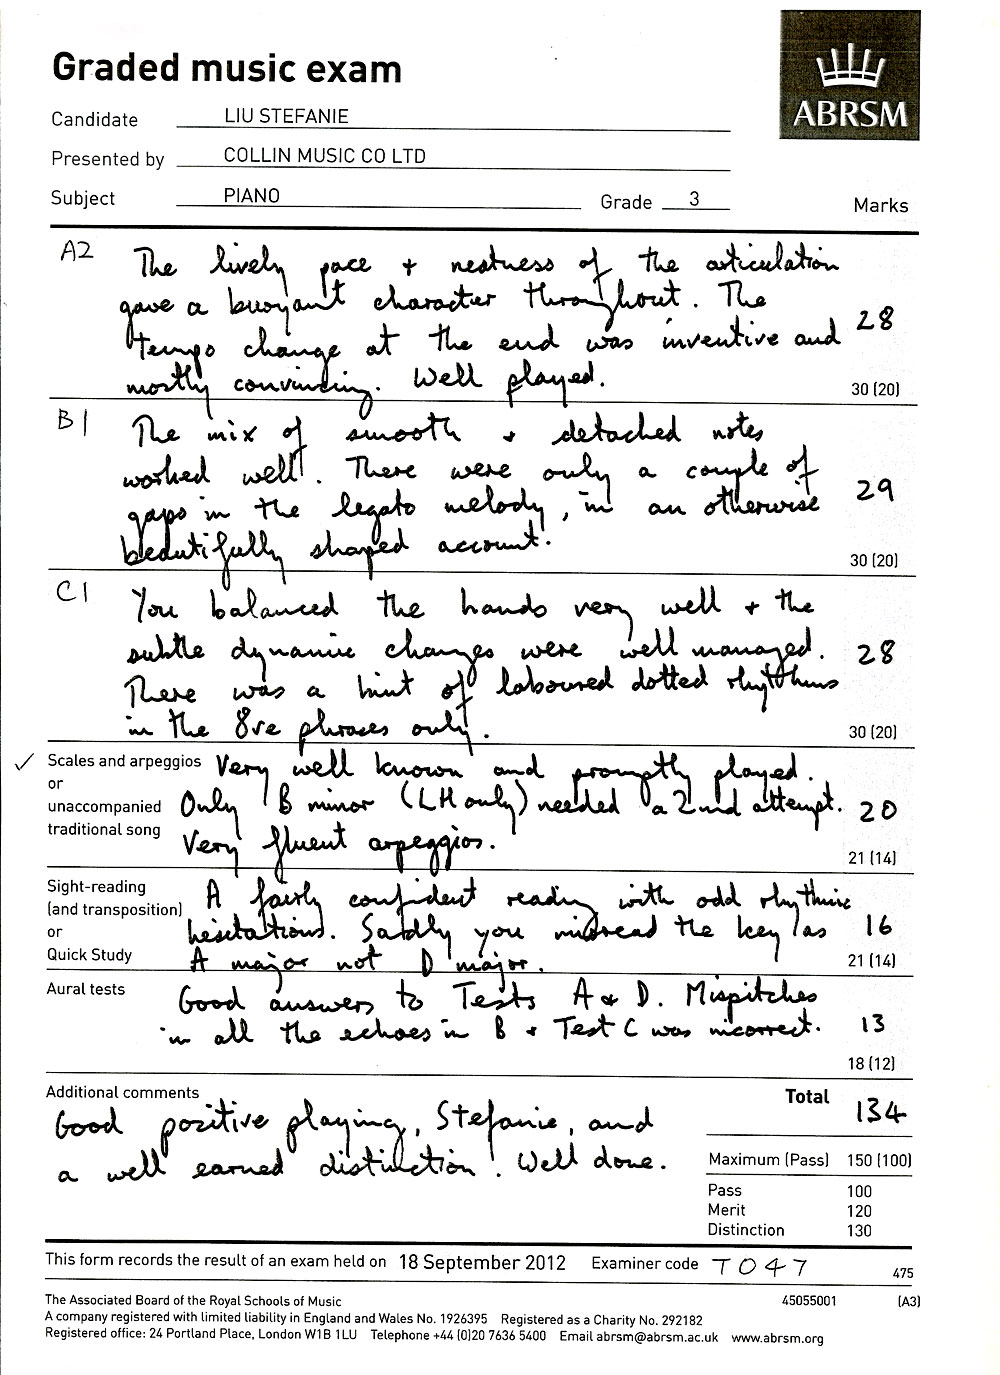 Graded music exam
ABRSM
Candidate LIU STEFANIE
Presented by COLLIN MUSIC CO LTD
Subject PIANO Grade 3 Marks
A2 The lively pace + neatness of the articulation
gave a buoyant character throughout. The
tempo change at the end was inventive and 28
mostly convincing. Well played.
30 (20)
B1 The mix of smooth + detached notes
worked well. There were only a couple of
gaps in the legato melody, in an otherwise 29
beautifully shaped account.
30 (20)
C1 You balanced the hands very well + the
subtle dynamic changes were well managed. 28
There was a hint of laboured dotted rhythms
in the 8ve phrases only.
30 (20)
✓ Scales and arpeggios Very well known and promptly played.
or
unaccompanied Only B minor (LH only) needed a 2nd attempt. 20
traditional song Very fluent arpeggios.
21 (14)
Sight-reading A fairly confident reading with odd rhythmic
(and transposition)
or hesitations. Sadly you misread the key as 16
Quick Study A major not D major.
21 (14)
Aural tests Good answers to Tests A + D. Mispitches
in all the echoes in B + Test C was incorrect. 13
18 (12)
Additional comments Total 134
Good positive playing, Stefanie, and
a well earned distinction! Well done.
Maximum (Pass) 150 (100)
Pass 100
Merit 120
Distinction 130
This form records the result of an exam held on 18 September 2012 Examiner code T047 475
The Associated Board of the Royal Schools of Music 45055001 (A3)
A company registered with limited liability in England and Wales No. 1926395 Registered as a Charity No. 292182
Registered office: 24 Portland Place, London W1B 1LU Telephone +44 (0)20 7636 5400 Email abrsm@abrsm.ac.uk www.abrsm.org